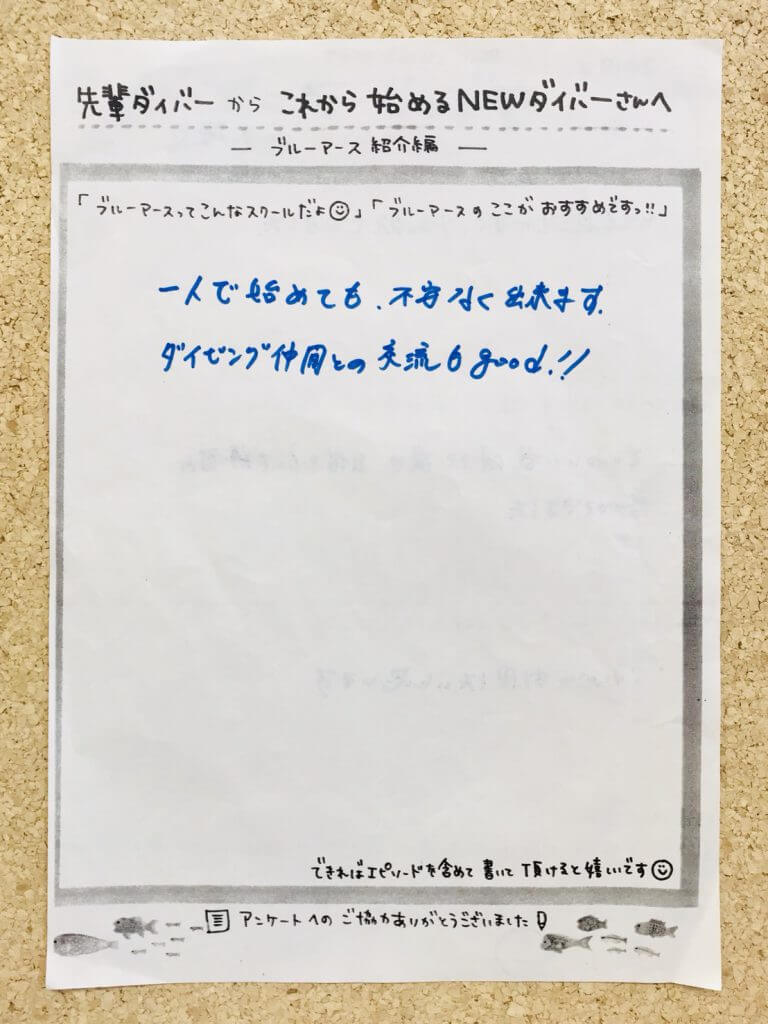 先輩ダイバーから これから始めるNEWダイバーさんへ
― ブルーアース紹介編 ―
「ブルーアースってこんなスクールだよ☺」「ブルーアースの ここが おすすめですっ!!」
一人で始めても、不安なく出来ます。
ダイビング仲間との交流も good!!
できればエピソードを含めて 書いて 頂けると嬉しいです☺
アンケートへの ご協力ありがとうございました